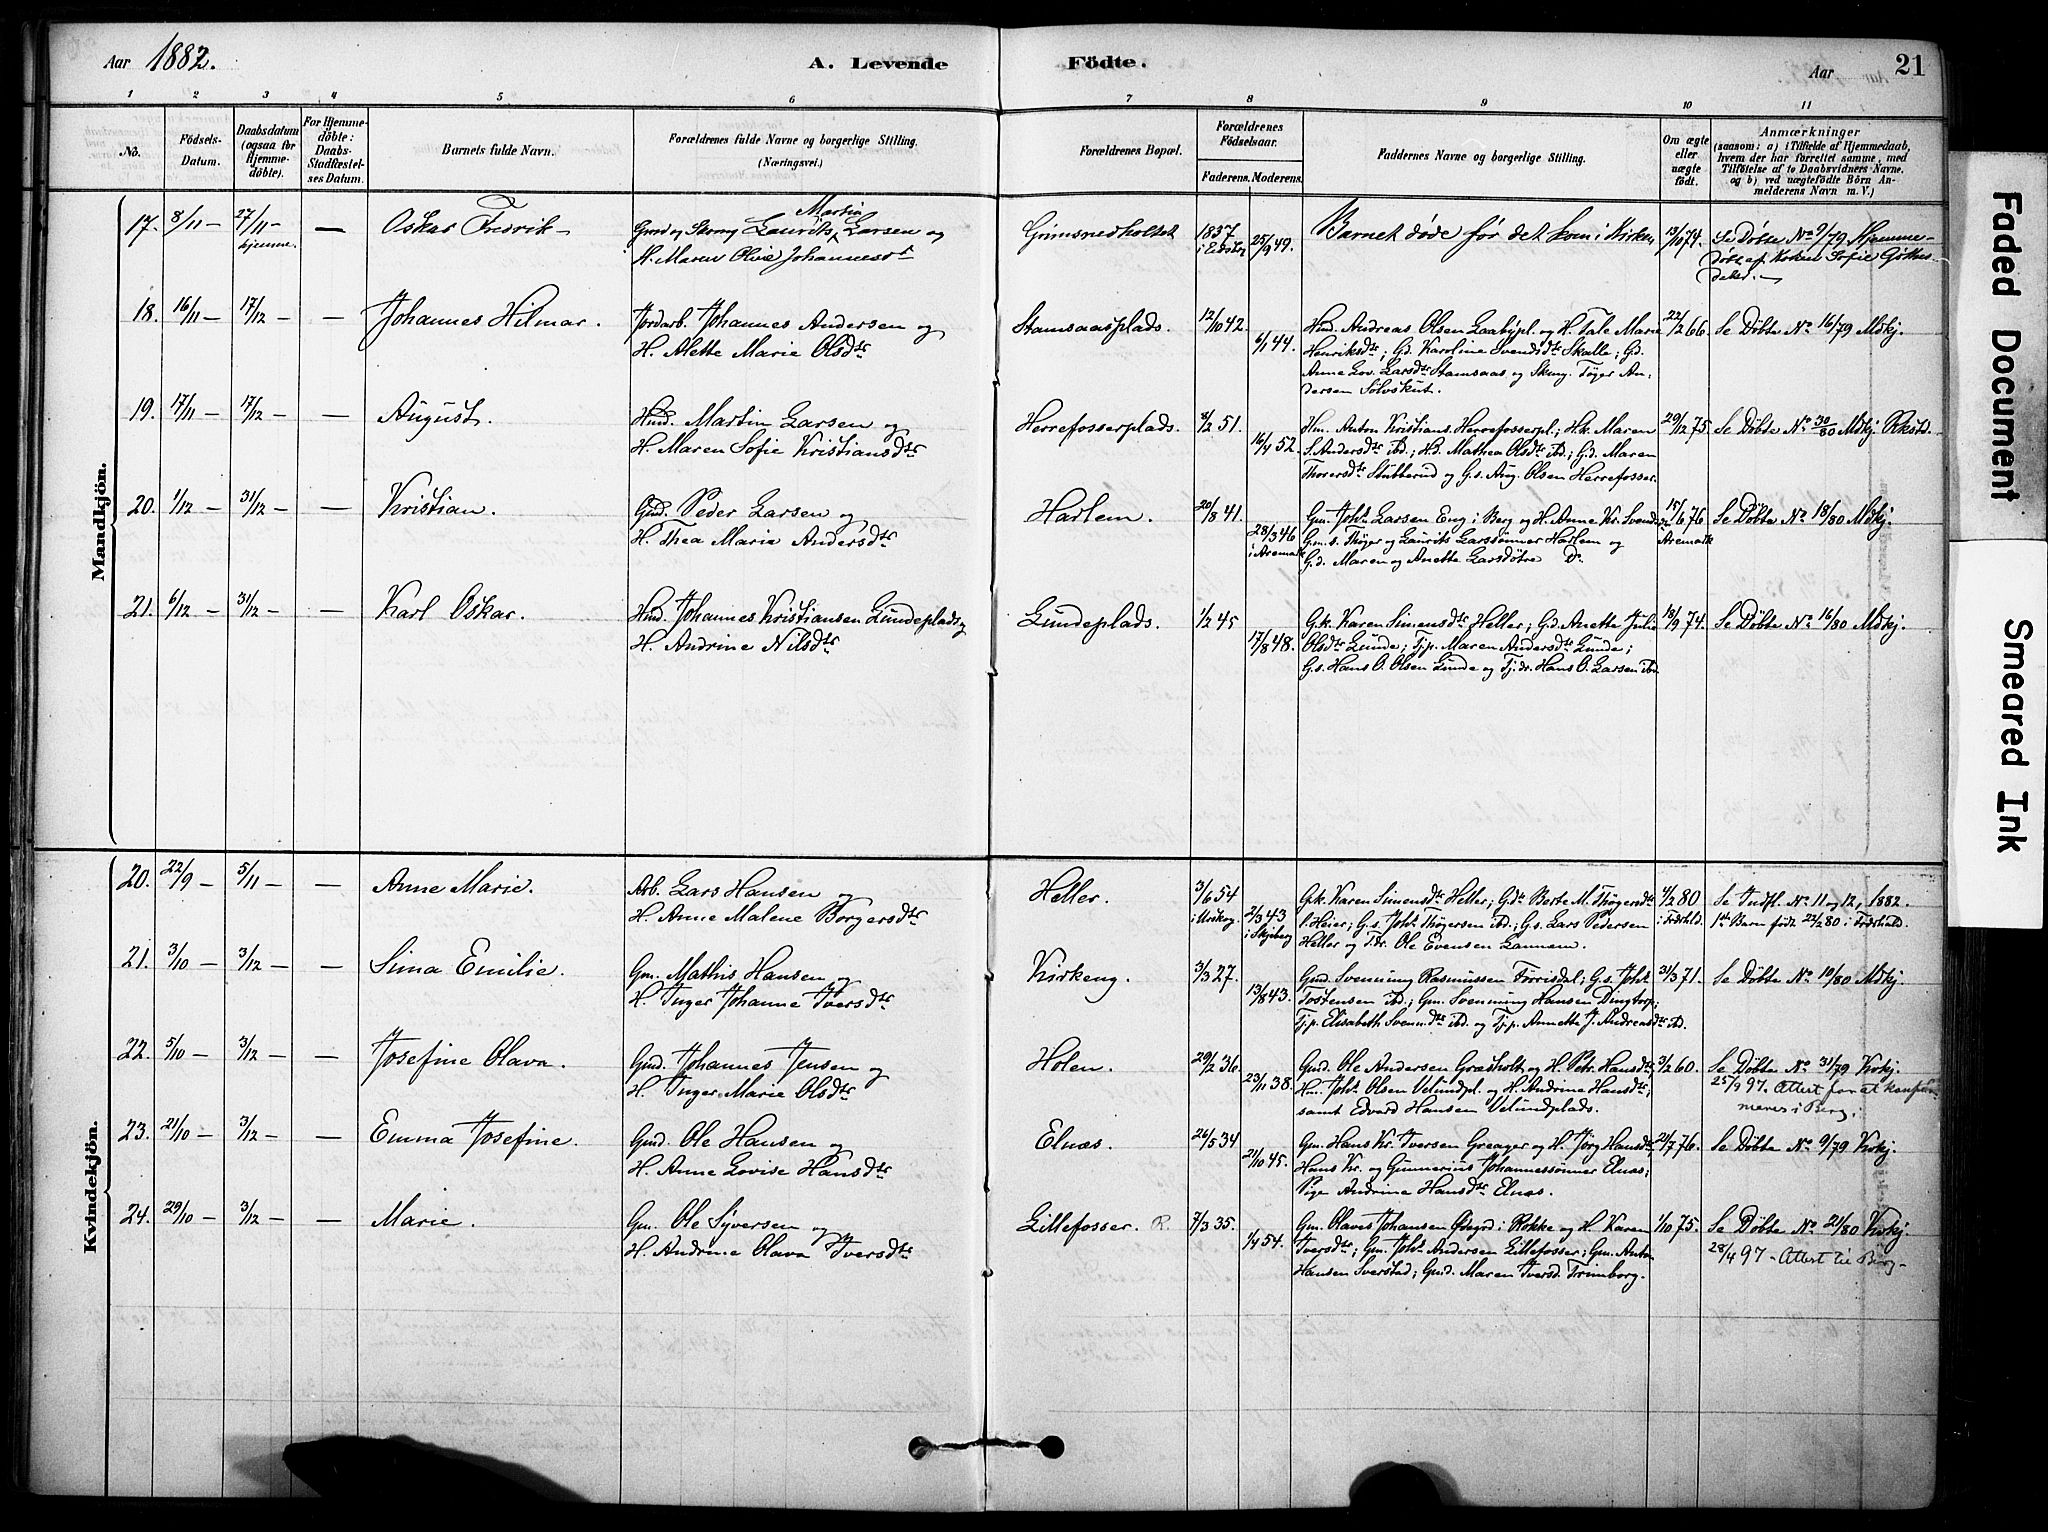 Aar 1882.
A. Levende Födte.
Aar 21
1 2 3 4 5 6 7 8 9 10 11
No.
Födsels-Datum.
Daabsdatum (ogsaa for Hjemme-döbte).
For Hjemme-döbte: Daabs-Stadfæstel-ses Datum.
Barnets fulde Navn.
Forældrenes fulde Navne og borgerlige Stilling. (Næringsvei.)
Forældrenes Bopæl.
Forældrenes Födselsaar.
Faderens. Moderens.
Faddernes Navne og borgerlige Stilling.
Om ægte eller uægte födt.
Anmærkninger
(saasom: a) i Tilfælde af Hjemmedaab,
hvem der har forrettet samme, med
Tilföielse af to Daabsvidners Navne,
og b) ved uægtefödte Börn An-
melderens Navn m. V.)
Mandkjön.
17. 8/11 – 27/11 – hjemme. — Oskar Fredrik –
Martin
Laurits Larsen og
H. Maren Olive Johannesdt
Grimsnedholtet 1857 25/9 49.
Barnet døde før det kom i Kirken
13/10 74. Se Døbte No 9/79 Hjemme-
døbt af Sofie
18. 16/11 – 17/12 – — Johannes Hilmar.
Jordarb. Johannes Andersen og
H. Alette Marie Olsdtr
Stamsaasplads. 12/10 42. 6/1 44.
Hmd. Andreas Olsen Laabypl. og H. Tale Marie
Henriksdtr; Gd. Karoline Svendsdtr Skalle; Gd.
Anne Lov. Larsdtr Stamsaas og Skmg. Tøger An-
dersen Sølvskut.
22/2 66. Se Døbte No 16/79 Mdkj.
19. 17/11 – 17/12 – — August.
Hmd. Martin Larsen og
H. Maren Sofie Kristiansdtr
Herrefosserplads. 8/2 51. 16/4 52.
Hm. Anton Kristians. Herrefosserpl.; H.k. Maren
S. Andersdtr ibd.; H.d. Mathea Olsdtr ibd.; G.d. Maren
Thorersdtr Stubberud og G.s. Aug. Olsen Herrefosser.
29/12 75. Se Døbte No 30/80 Mdkj Rokst.
20. 1/12 – 31/12 – — Kristian.
Gmd. Peder Larsen og
H. Thea Maria Andersdtr
Harlem. 20/8 41. 28/3 46 i Aremark
Gm. Johs Larsen Eng i Berg og H. Anne Kr. Svendsdtr
G.m.s. Thøger og Laurits Larssønner Harlem og
G.d. Maren og Anette Larsdøtre Do
17/6 76 Aremark Se Døbte No 18/80 Mdkj.
21. 6/12 – 31/12 – — Karl Oskar.
Hmd. Johannes Kristiansen Lundeplads og
H. Andrine Nilsdtr
Lundeplads. 1/2 45 17/8 48.
G.k. Karen Simensdtr Heller; G.d. Anette Julie
Olsdtr Lunde; Tj.p. Maren Andersdtr Lunde;
G.s. Hans O. Olsen Lunde og Tj.dr. Hans O. Larsen ibd.
18/9 74. Se Døbte No 16/80 Mdkj.
Kvindekjön.
20. 22/9 – 5/11 – — Anne Marie.
Arb. Lars Hansen og
H. Anne Malene Borgersdtr
Heller. 3/6 54 i Urskog 2/3 43 i Skjeberg
G.k. Karen Simensdtr Heller; G.d. Berte M. Thøgersdtr
i Heier; G.s. Johs Thøgersen ibd.; G.s. Lars Pedersen
Heller og T.dr. Ole Evensen Lannem.
4/2 80 i Fredrhld. Se Indfl. No 11 og 12, 1882.
1ste Barn født 22/2 80 i Fredrhald.
21. 3/10 – 3/12 – — Sina Emilie.
Gm. Mathis Hansen og
H. Inger Johanne Iversdtr
Kirkeng. 3/3 27. 13/8 43.
Gmd. Svenning Rasmussen Forrisdal; G.s. Johs
Tostensen ibd.; Gm. Svenning Hansen Dingtorp;
Tj.p. Elisabeth Svennsdtr ibd. og Tj.p. Annette J. Andreasdtr ibd.
31/3 71. Se Døbte No 10/80 Mdkj.
22. 5/10 – 3/12 – — Josefine Olava.
Gmd. Johannes Jensen og
H. Inger Marie Olsdtr
Holen. 29/2 36. 23/11 38.
Gmd. Ole Andersen Græsholt og H. Petr. Hansdtr;
Hm. Johs Olsen Velundpl. og H. Andrine Hansdtr;
samt Edvard Hansen Velundplads.
3/2 60. Se Døbte No 31/79 Kvkj.
25/9 97. Attest for at konfir-
meres i Berg.
23. 21/10 – 3/12 – — Emma Josefine.
Gmd. Ole Hansen og
H. Anne Lovise Hansdtr
Elnæs. 26/5 34 21/10 45.
Gm. Hans Kr. Iversen Greager og H. Jørg. Hansdtr;
Hans Kr. og Gunnerius Johannessønner Elnæs;
Pige Andrine Hansdtr Elnæs.
21/7 76. Se Døbte No 9/79 Kvkj.
24. 29/10 – 3/12 – — Marie.
Gm. Ole Syversen og
H. Andrine Olava Iversdtr
Lillefosser. R. 7/3 35. 1/4 54.
Gm. Olaves Johansen Ødegrd i Rokke og H. Karen
Iversdtr; Gm. Johs Andersen Lillefosser; Gm. Anton
Hansen Sverstad; Gmd. Maren Iversd. Trimborg.
1/10 75. Se Døbte No 21/80 Kvkj.
28/4 97 – Attest til Berg –
Faded Document
Smeared Ink